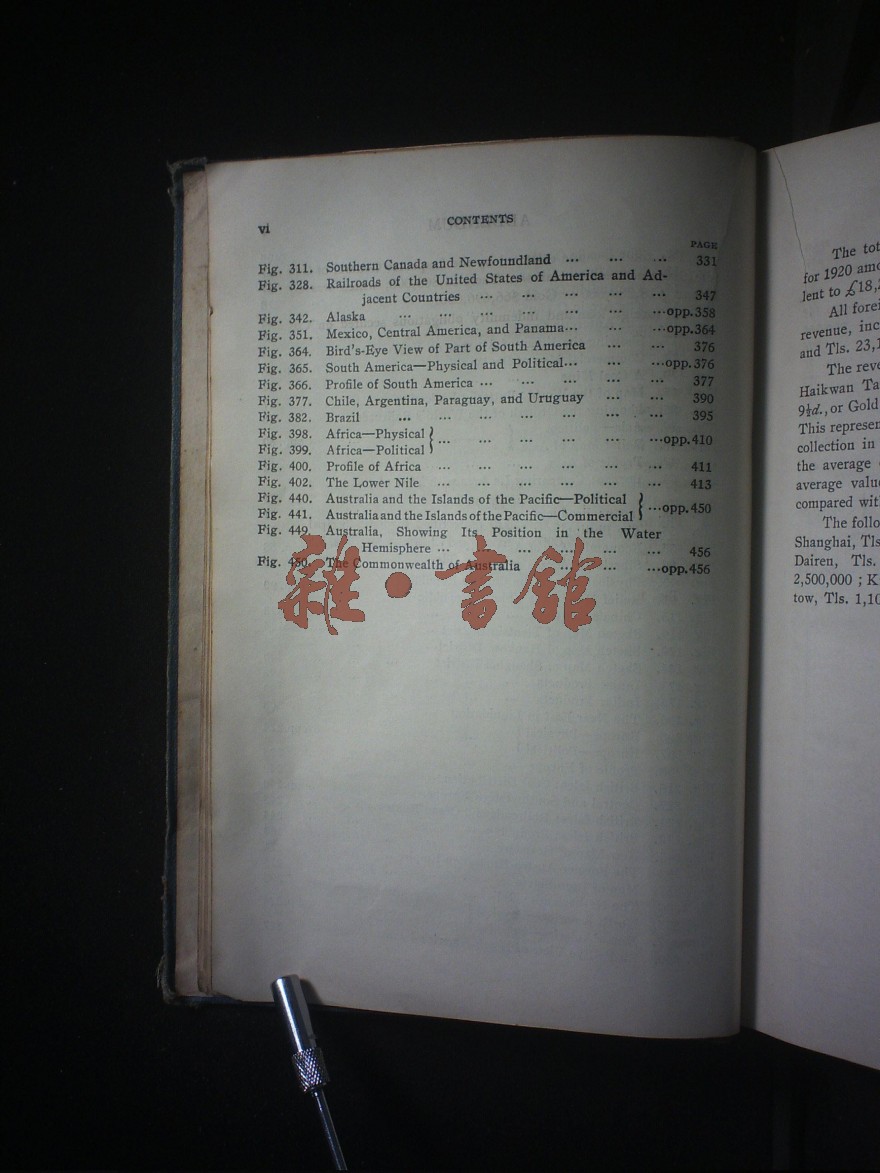 vi
CONTENTS
PAGE
Fig. 311. Southern Canada and Newfoundland ... ... ... 331
Fig. 328. Railroads of the United States of America and Ad-
jacent Countries ... ... ... ... ... 347
Fig. 342. Alaska ... ... ... ... ... ... ...opp.358
Fig. 351. Mexico, Central America, and Panama... ... ...opp.364
Fig. 364. Bird's-Eye View of Part of South America ... ... 376
Fig. 365. South America—Physical and Political... ... ...opp.376
Fig. 366. Profile of South America ... ... ... ... ... 377
Fig. 377. Chile, Argentina, Paraguay, and Uruguay ... ... 390
Fig. 382. Brazil ... ... ... ... ... ... ... 395
Fig. 398. Africa—Physical } ... ... ... ... ... ...opp.410
Fig. 399. Africa—Political
Fig. 400. Profile of Africa ... ... ... ... ... ... 411
Fig. 402. The Lower Nile ... ... ... ... ... ... 413
Fig. 440. Australia and the Islands of the Pacific—Political } ...opp.450
Fig. 441. Australia and the Islands of the Pacific—Commercial
Fig. 449. Australia, Showing Its Position in the Water
Hemisphere ... ... ... ... ... ... 456
Fig. 450. The Commonwealth of Australia ... ... ...opp.456
雜·書館
The tot
for 1920 amo
lent to £18,
All forei
revenue, inc
and Tls. 23,1
The reve
Haikwan Ta
9½d., or Gold
This represen
collection in
the average
average valu
compared wit
The follo
Shanghai, Tls
Dairen, Tls.
2,500,000 ; K
tow, Tls. 1,10